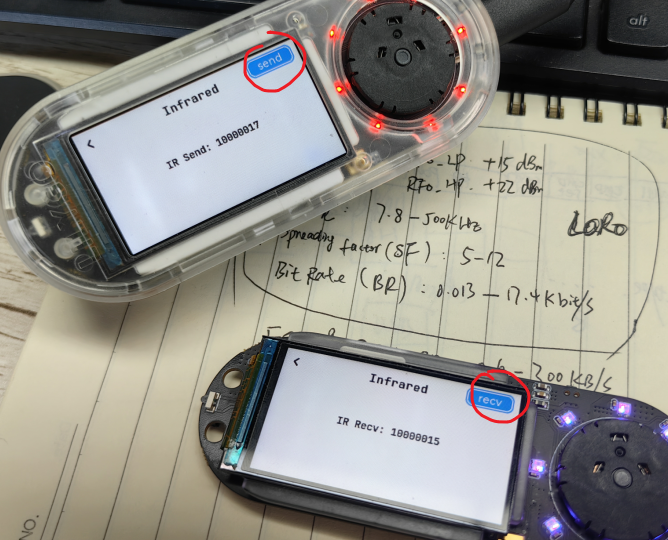 alt
send
Infrared
<
IR Send: 10000017
+15 dBm
RFO_HP. +22 dBm
LORa
: 7.8-500KHz
Spreading factor (SF) : 5-12
Bit Rate (BR) : 0.013 - 17.4Kbit/s
- 200 KB/S
<
Infrared
recv
IR Recv: 10000015
NO.